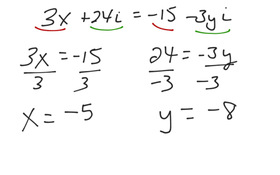 3x + 24i = -15 - 3yi
3x = -15    24 = -3y
3    3    -3    -3
x = -5    y = -8